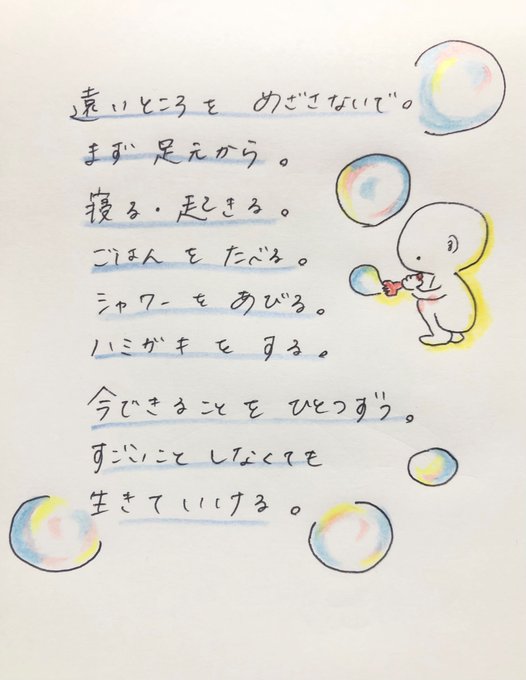 遠いところを めざさないで。
まず 足元から。
寝る・起きる。
ごはん を たべる。
シャワー を あびる。
ハミガキ を する。
今できることを ひとつずつ。
すごいこと しなくても
生きて いける。